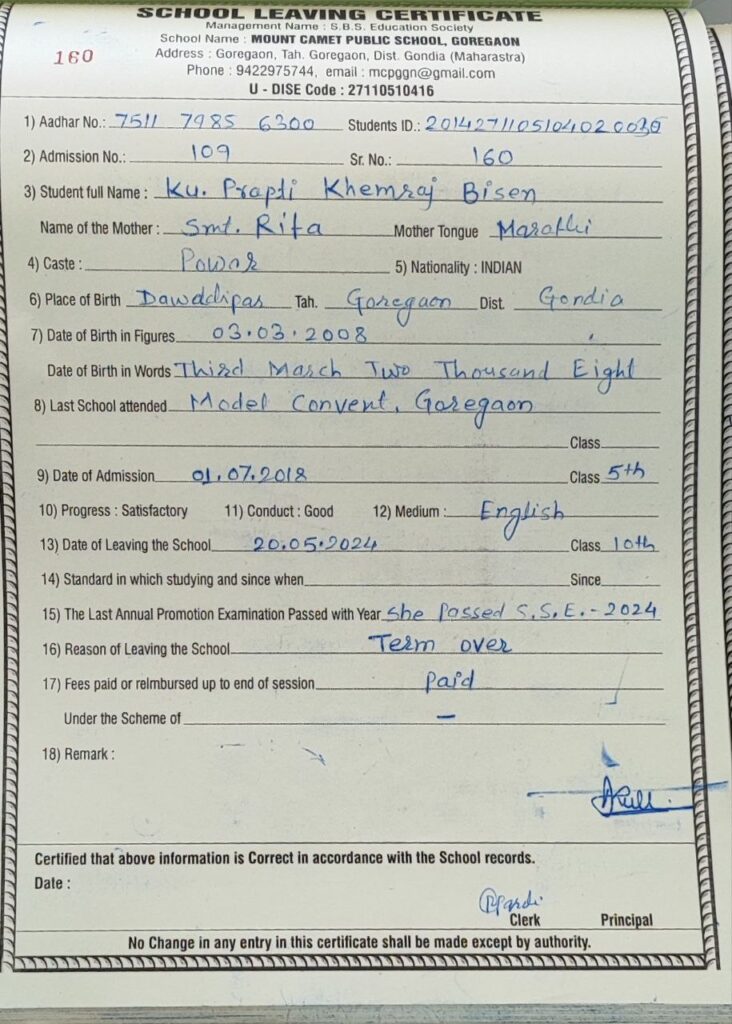 SCHOOL LEAVING CERTIFICATE
Management Name : S.B.S. Education Society
School Name : MOUNT CAMET PUBLIC SCHOOL, GOREGAON
160
Address : Goregaon, Tah. Goregaon, Dist. Gondia (Maharastra)
Phone : 9422975744, email : mcpggn@gmail.com
U - DISE Code : 27110510416
1) Aadhar No.: 7511 7985 6300 Students ID.: 2014271105104020036
2) Admission No.: 109 Sr. No.: 160
3) Student full Name : Ku. Prapti Khemraj Bisen
Name of the Mother : Smt. Rita Mother Tongue Marathi
4) Caste : Powar 5) Nationality : INDIAN
6) Place of Birth Dawddipar Tah. Goregaon Dist. Gondia
7) Date of Birth in Figures 03.03.2008
Date of Birth in Words Third March Two Thousand Eight
8) Last School attended Model Convent, Goregaon
Class
9) Date of Admission 01.07.2018 Class 5th
10) Progress : Satisfactory 11) Conduct : Good 12) Medium : English
13) Date of Leaving the School 20.05.2024 Class 10th
14) Standard in which studying and since when Since
15) The Last Annual Promotion Examination Passed with Year she Passed S.S.E.-2024
16) Reason of Leaving the School Term over
17) Fees paid or reimbursed up to end of session paid
Under the Scheme of —
18) Remark :
Certified that above information is Correct in accordance with the School records.
Date :
Clerk Principal
No Change in any entry in this certificate shall be made except by authority.